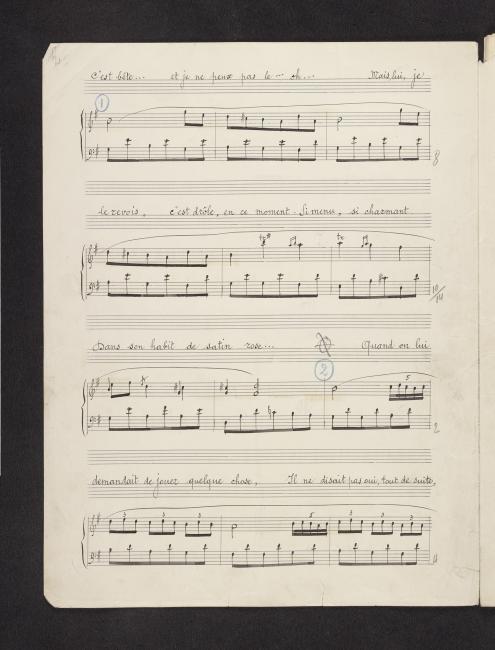 C'est bête... et je ne peux pas le – oh... Mais lui, je
1
8
le revois, c'est drôle, en ce moment. Si menu, si charmant
10/14
Dans son habit de satin rose... Quand on lui
2
5
2
demandait de jouer quelque chose, Il ne disait pas oui, tout de suite,
3 3 3 5 3 3